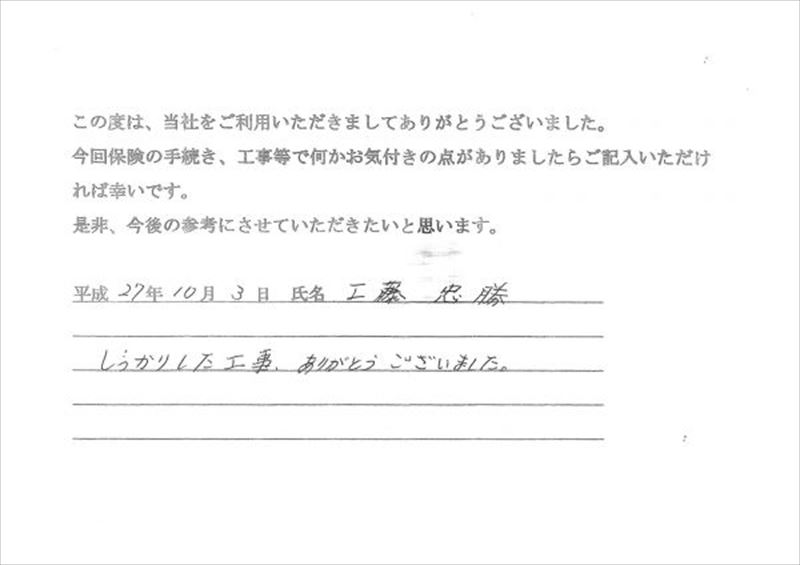 この度は、当社をご利用いただきましてありがとうございました。
今回保険の手続き、工事等で何かお気付きの点がありましたらご記入いただけ
れば幸いです。
是非、今後の参考にさせていただきたいと思います。
平成 27年 10月 3日 氏名 工藤 忠勝
しっかりした工事、ありがとうございました。